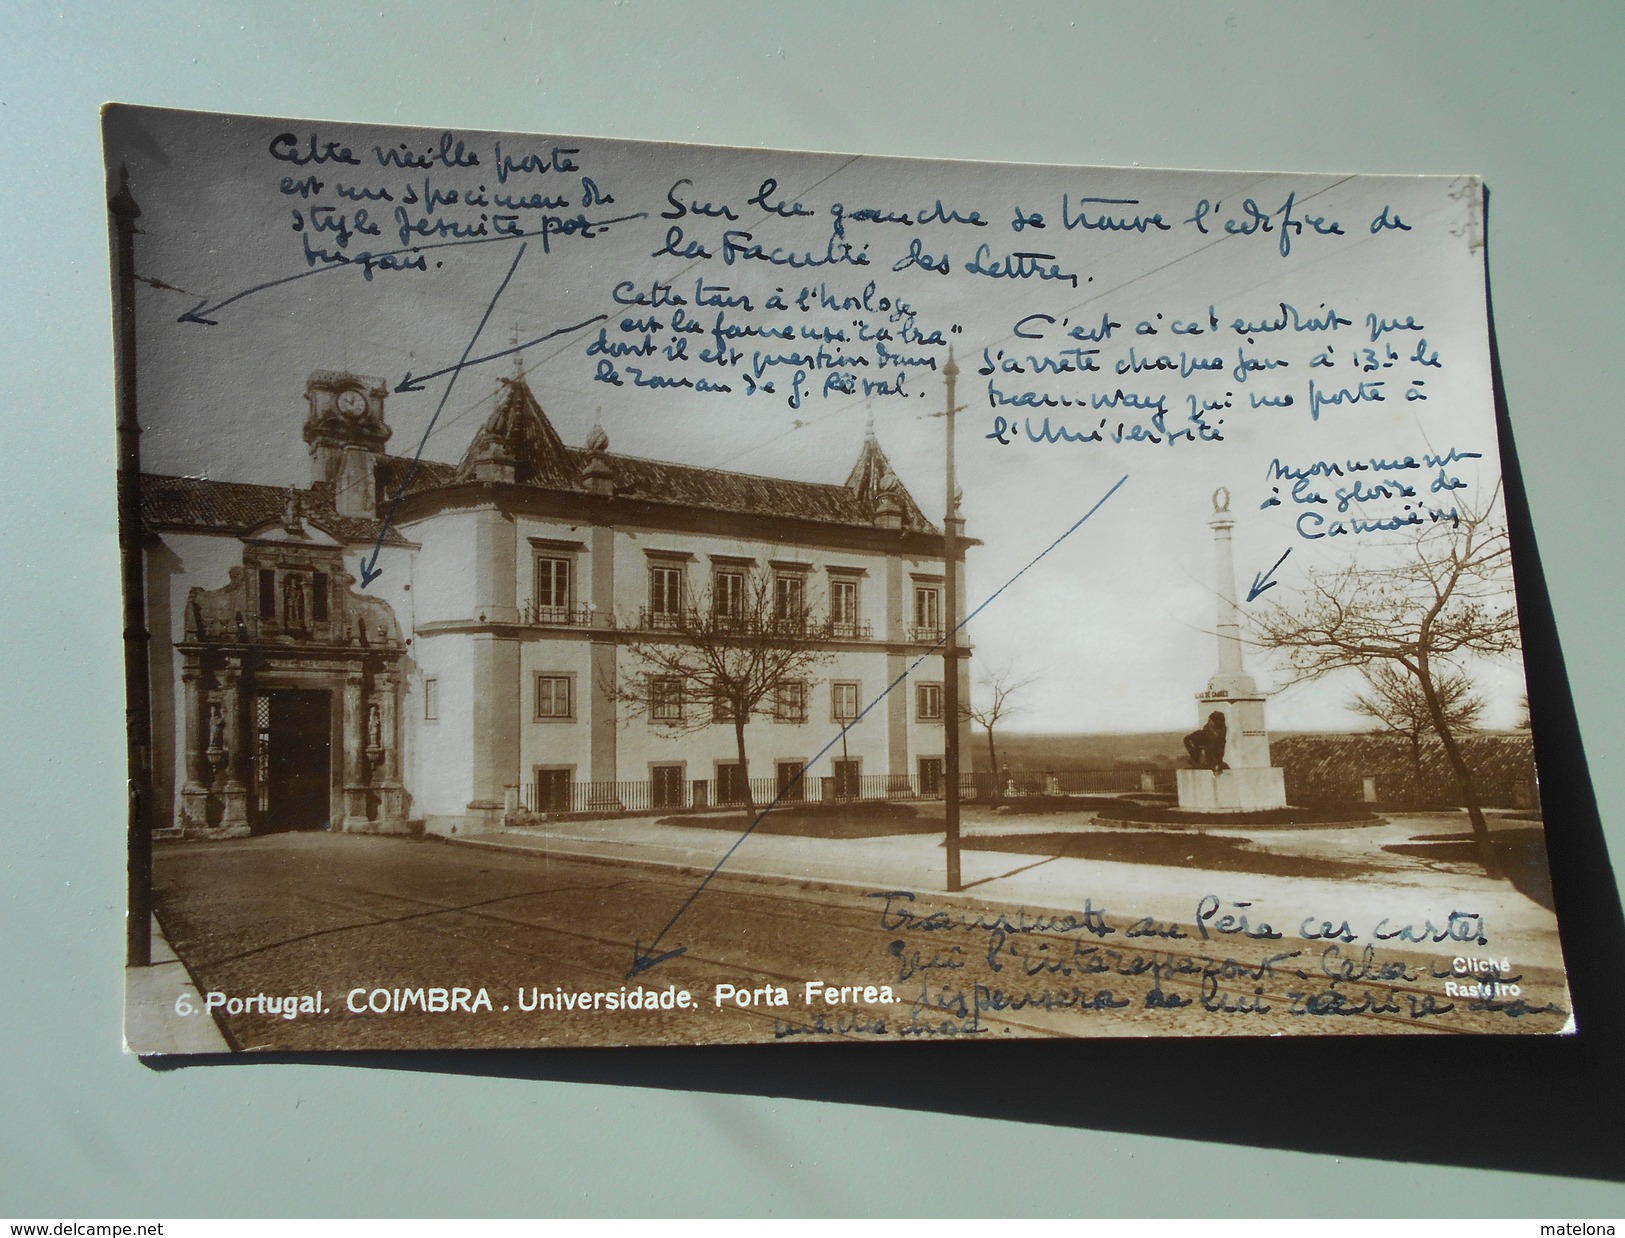 Cette vieille porte
est un specimen du
style Jesuite por-
tugais.
Sur la gauche se trouve l'edifice de
la Faculté des Lettres.
Cette tour à l'horloge
est la fameuse "cabra"
dont il est question dans
le roman de G. Réval.
C'est à cet endroit que
s'arrête chaque jour à 13h le
tramway qui me porte à
l'Université
monument
à la gloire de
Camoëns
LUIZ DE CAMÕES
Transmets au Père ces cartes
qui l'interesseront. Cela me
dispensera de lui réécrire la
même chose.
Cliché
Rasteiro
6. Portugal. COIMBRA. Universidade. Porta Ferrea.
www.delcampe.net
matelona